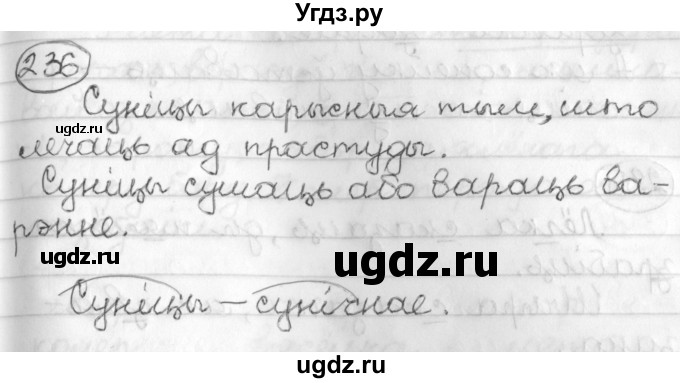 Угдз.ру
236
Суніцы карысныя тым, што
лечаць ад прастуды.
Суніцы сушаць або вараць ва-
рэнне.
Суніцы – сунічнае.
ugdz.ru
ugdz.ru
ugdz.ru
ugdz.ru
ugdz.ru
ugdz.ru